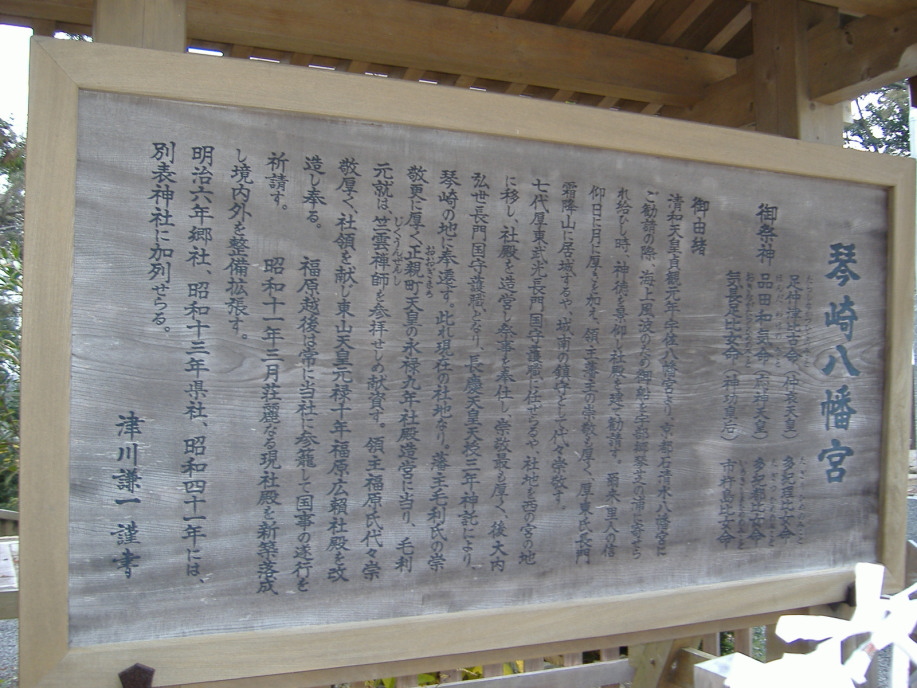 琴崎八幡宮
御祭神
足仲津比古命（仲哀天皇）　多紀理比女命
品田和気命（応神天皇）　多紀都比女命
気長足比女命（神功皇后）　市杵島比女命
御由緒
清和天皇貞観元年宇佐八幡宮より、京都石清水八幡宮に
ご勧請の際、海上風波のため御船を宇部
れ給ひし時、神徳を尊仰し社殿を建て勧請す。爾来里人の信
仰日に月に厚きを加え、領主藩主の崇敬も厚く、厚東氏長門
霜降山に居城するや、城南の鎮守として代々崇敬す。
七代厚東武光長門国守護職に任ぜらるや、社地を西の宮の地
に移し、社殿を造営し祭事を奉仕し、崇敬最も厚く、後大内
弘世長門国守護職となり、長慶天皇天授三年神託により、
琴崎の地に奉遷す。此れ現在の社地なり。藩主毛利氏の崇
敬更に厚く正親町天皇の永禄九年社殿造営に当り、毛利
元就は、竺雲禅師を参拝せしめ献資す。領主福原氏代々崇
敬厚く、社領を献じ東山天皇元禄十年福原広頼社殿を改
造し奉る。　福原越後は常に当社に参籠して国事の遂行を
祈請す。　昭和十一年三月荘麗なる現社殿を新築落成
し境内外を整備拡張す。
明治六年郷社、昭和十三年県社、昭和四十一年には、
別表神社に加列せらる。
津川謙一謹書